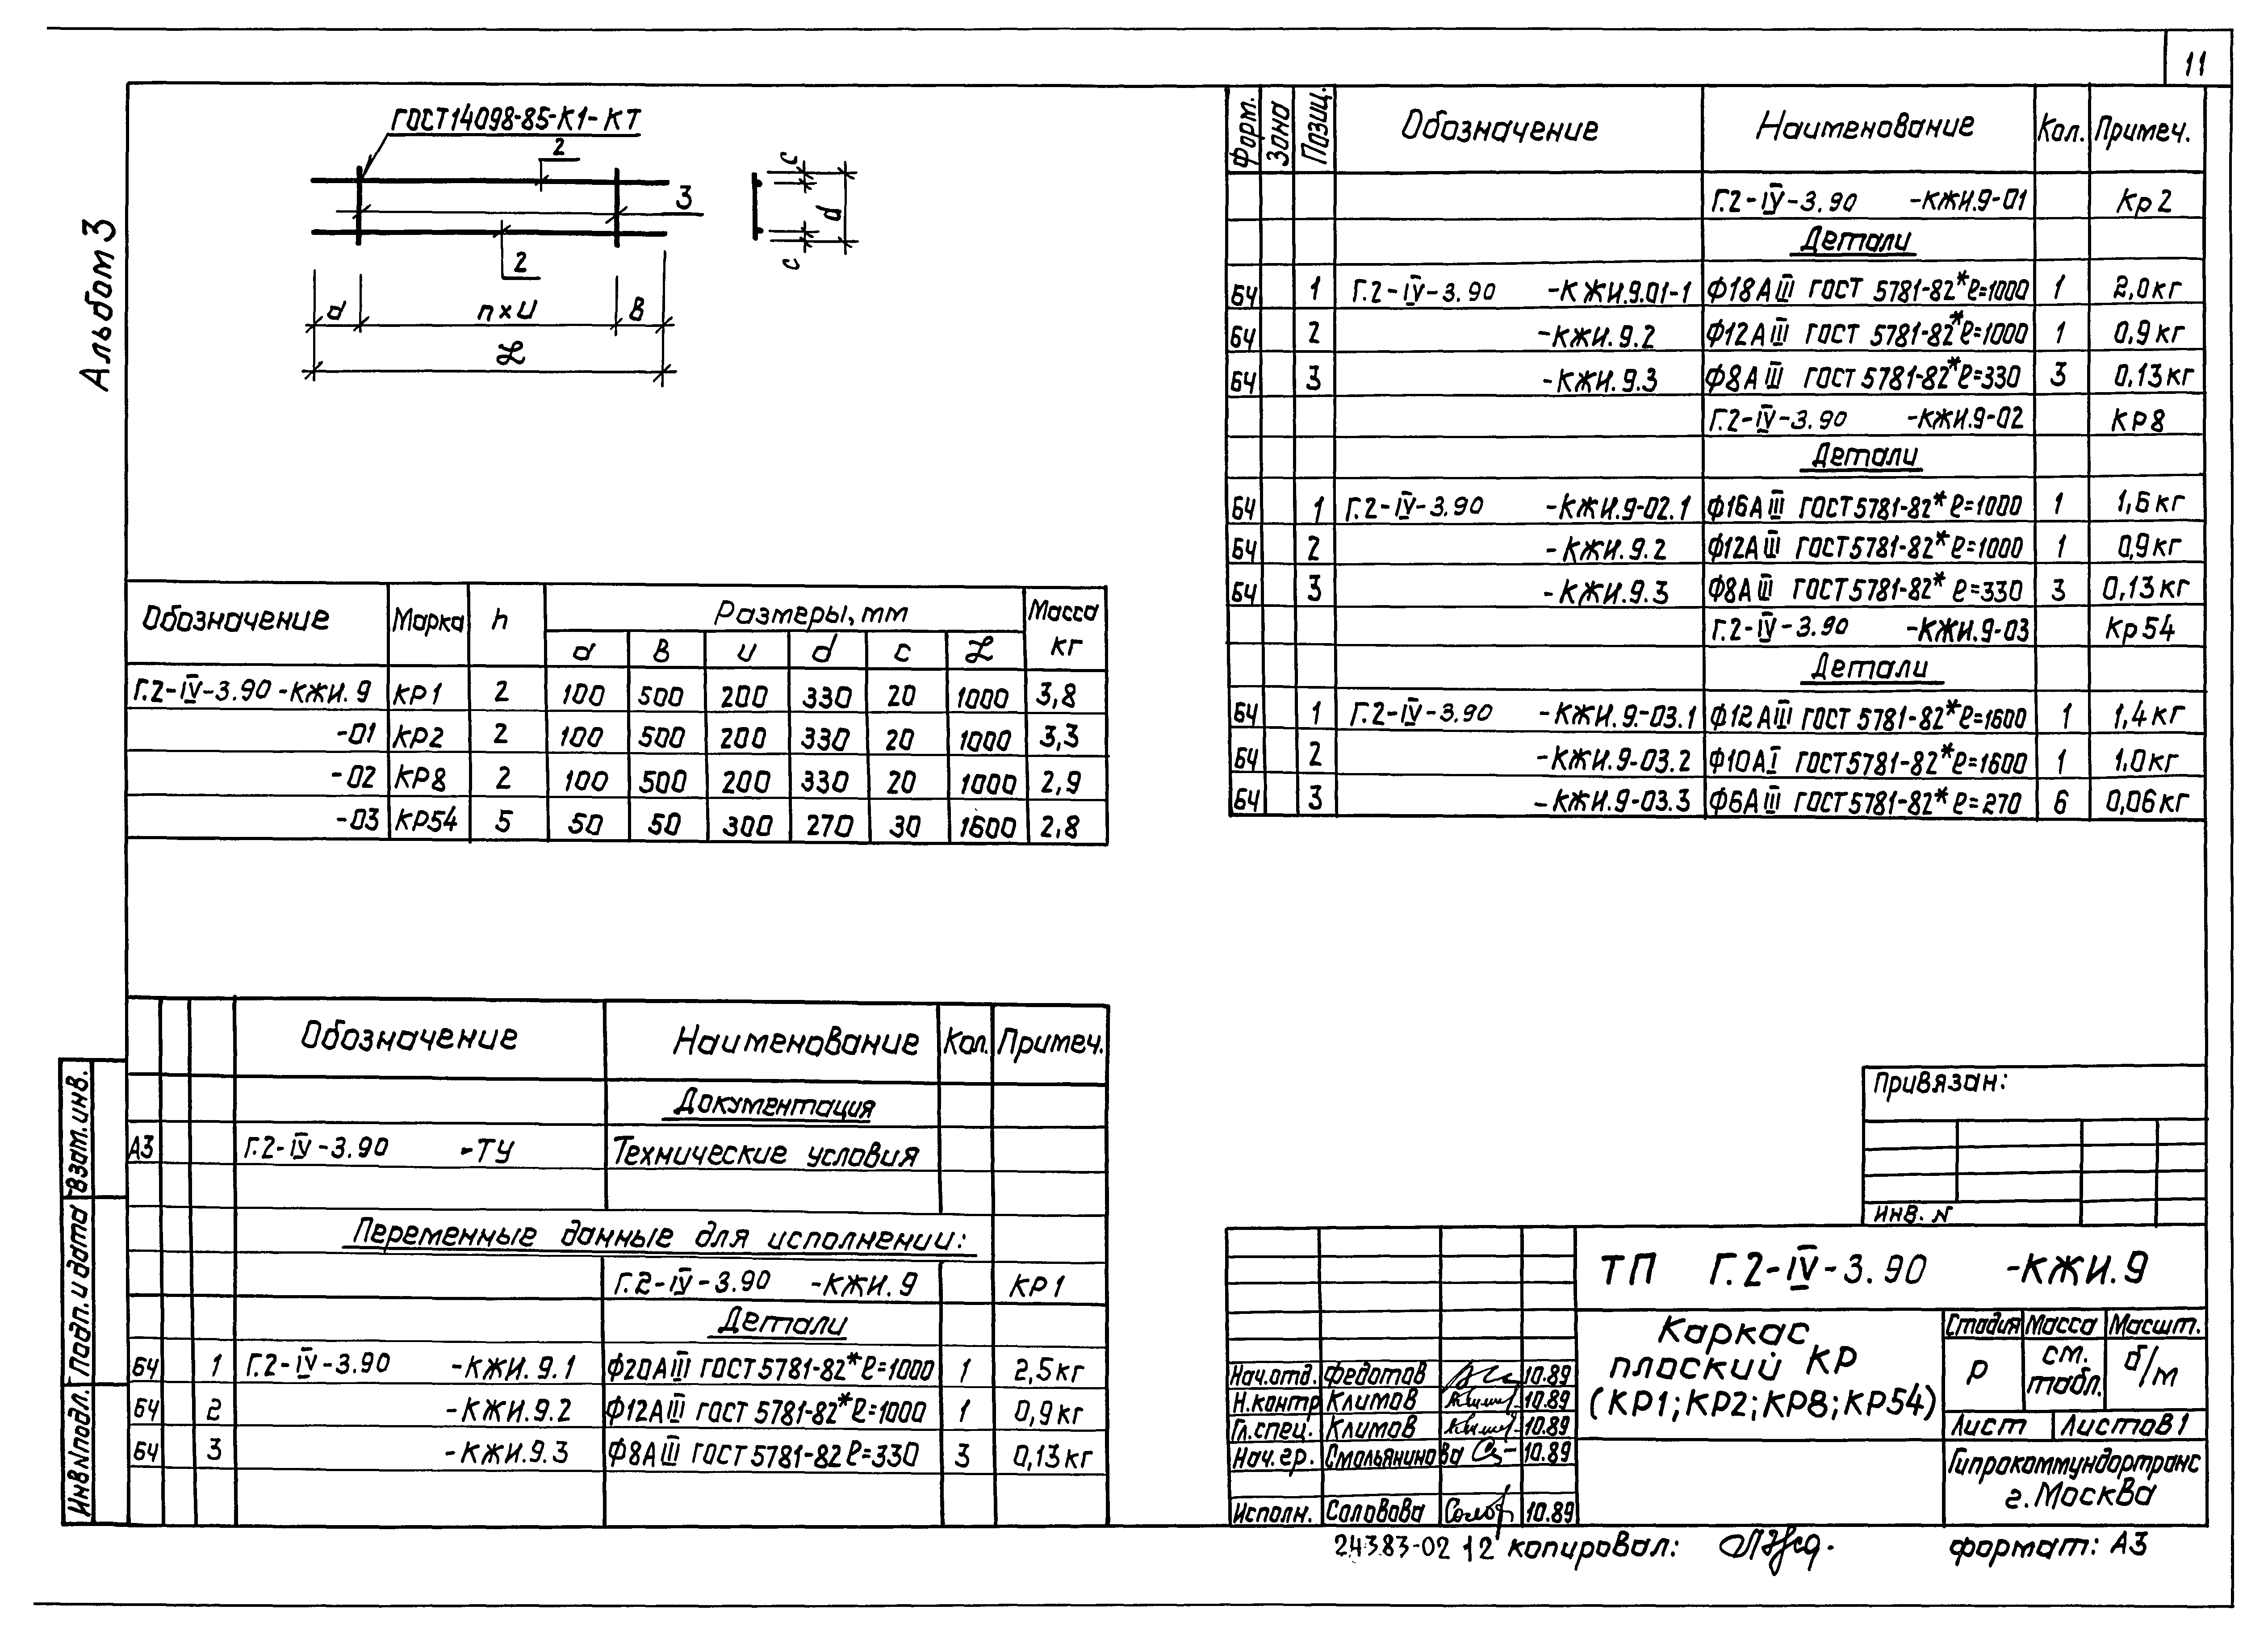 11
Альбом 3
ГОСТ14098-85-К1-КТ
2
3
2
c
d
c
a
n×u
в
L
Обозначение Марка n Размеры, мм Масса кг
a в u d c L
Г.2-IV-3.90 -КЖИ.9 КР1 2 100 500 200 330 20 1000 3,8
-01 КР2 2 100 500 200 330 20 1000 3,3
-02 КР8 2 100 500 200 330 20 1000 2,9
-03 КР54 5 50 50 300 270 30 1600 2,8
Обозначение Наименование Кол. Примеч.
Документация
А3 Г.2-IV-3.90 -ТУ Технические условия
Переменные данные для исполнении:
Г.2-IV-3.90 -КЖИ.9 КР1
Детали
БЧ 1 Г.2-IV-3.90 -КЖИ.9.1 Ф20АIII ГОСТ 5781-82* ℓ=1000 1 2,5кг
БЧ 2 -КЖИ.9.2 Ф12АIII ГОСТ 5781-82* ℓ=1000 1 0,9кг
БЧ 3 -КЖИ.9.3 Ф8АIII ГОСТ 5781-82 ℓ=330 3 0,13кг
Взам.инв.
Подп. и дата
Инв№подл.
Форм. Зона Позиц. Обозначение Наименование Кол. Примеч.
Г.2-IV-3.90 -КЖИ.9-01 Кр2
Детали
БЧ 1 Г.2-IV-3.90 -КЖИ.9.01-1 Ф18АIII ГОСТ 5781-82* ℓ=1000 1 2,0кг
БЧ 2 -КЖИ.9.2 Ф12АIII ГОСТ 5781-82* ℓ=1000 1 0,9кг
БЧ 3 -КЖИ.9.3 Ф8АIII ГОСТ 5781-82* ℓ=330 3 0,13кг
Г.2-IV-3.90 -КЖИ.9-02 КР8
Детали
БЧ 1 Г.2-IV-3.90 -КЖИ.9-02.1 Ф16АIII ГОСТ 5781-82* ℓ=1000 1 1,6кг
БЧ 2 -КЖИ.9.2 Ф12АIII ГОСТ 5781-82* ℓ=1000 1 0,9кг
БЧ 3 -КЖИ.9.3 Ф8АIII ГОСТ 5781-82* ℓ=330 3 0,13кг
Г.2-IV-3.90 -КЖИ.9-03 Кр54
Детали
БЧ 1 Г.2-IV-3.90 -КЖИ.9-03.1 Ф12АIII ГОСТ 5781-82* ℓ=1600 1 1,4кг
БЧ 2 -КЖИ.9-03.2 Ф10АI ГОСТ 5781-82* ℓ=1600 1 1.0кг
БЧ 3 -КЖИ.9-03.3 Ф6АIII ГОСТ 5781-82* ℓ=270 6 0,06кг
Привязан:
Инв. №
ТП Г.2-IV-3.90 -КЖИ.9
Каркас
плоский КР
(КР1; КР2; КР8; КР54)
Стадия Масса Масшт.
Р см. табл. б/м
Лист Листов 1
Гипрокоммундортранс
г. Москва
Нач.отд. Федотов 10.89
Н.контр Климов 10.89
Гл.спец. Климов 10.89
Нач.гр. Смольянинова 10.89
Исполн. Соловова 10.89
24383-02 12 копировал: формат: А3